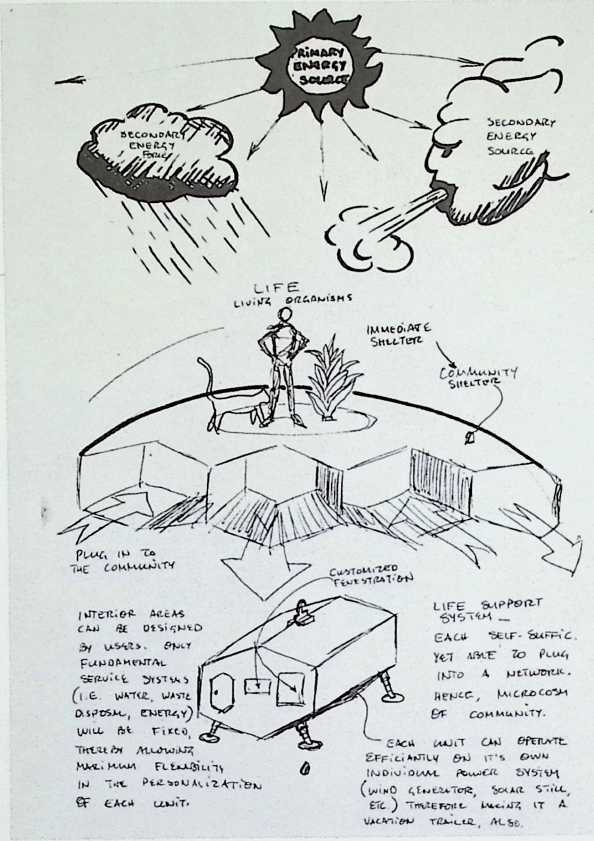 PRIMARY
ENERGY
SOURCE
SECONDARY
ENERGY
SECONDARY
ENERGY
SOURCE
LIFE
LIVING ORGANISMS
IMMEDIATE
SHELTER
COMMUNITY
SHELTER
PLUG IN TO
THE COMMUNITY
CUSTOMIZED
FENESTRATION
INTERIOR AREAS
CAN BE DESIGNED
BY USERS. ONLY
FUNDAMENTAL
SERVICE SYSTEMS
(I.E. WATER, WASTE
DISPOSAL, ENERGY)
WILL BE FIXED,
THEREBY ALLOWING
MAXIMUM FLEXIBILITY
IN THE PERSONALIZATION
OF EACH UNIT.
LIFE SUPPORT
SYSTEM —
EACH SELF-SUFFIC.
YET ABLE TO PLUG
INTO A NETWORK.
HENCE, MICROCOSM
OF COMMUNITY.
EACH UNIT CAN OPERATE
EFFICIANTLY ON IT'S OWN
INDIVIDUAL POWER SYSTEM
(WIND GENERATOR, SOLAR STILL,
ETC.) THEREFORE MAKING IT A
VACATION TRAILER, ALSO.